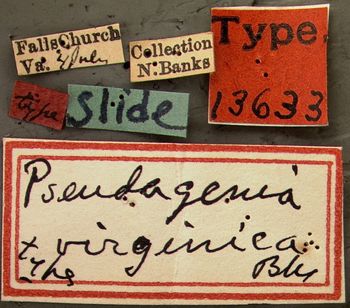 Falls Church
Va. 4 July
Collection
N. Banks
Type
13633
type
Slide
Pseudagenia
virginica
type Bks